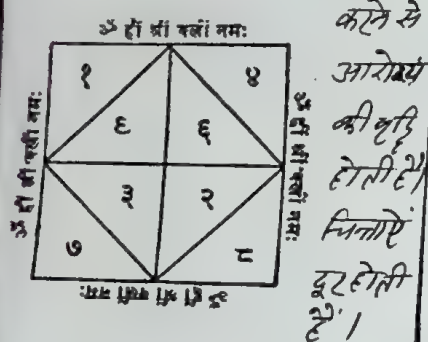 ॐ ह्रीं श्रीं क्लीं नमः
ॐ ह्रीं श्रीं क्लीं नमः
ॐ ह्रीं श्रीं क्लीं नमः
ॐ ह्रीं श्रीं क्लीं नमः
१ ४
६ ६
३ २
७ ८
करने से
आरोग्य
की वृद्धि
होती है।
चिन्ताएं
दूर होती
हैं।